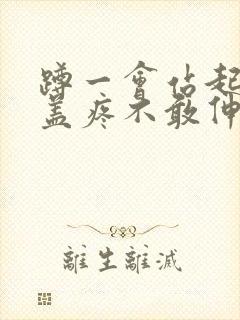 蹲一會站起
蓋疼不敢伸
離生離滅